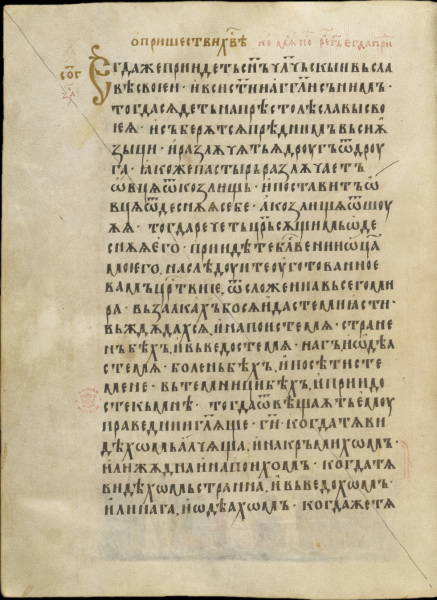 о пришествїи хв҃ѣ
Егда же прїидетъ сн҃ъ чл҃чьскыи въ сла
вѣ своеи · и вси ст҃їи агг҃ли съ нимъ ·
тогда сѧдетъ на прѣстолѣ славы сво
еѧ · и съберѫтсѧ прѣд нимъ въси ѩ
зыци · и разлѫчѧтъ ѧ дроугъ ѿ дроу
га · ꙗкоже пастырь разлѫчаетъ
ѡвцѧ ѿ козлищь · и поставитъ ѡ
вцѧ ѡ деснѫѧ себе · а козлищѧ ѡ шоу
ѫѧ · тогда речетъ цр҃ь сѫщимъ ѡ де
снѫѧ его · прїидѣте бл҃венїи ѡц҃а
моего, наслѣдоуите оуготованное
вамъ цр҃твїе, ѿ сложенїа въсего ми
ра · възалкахъ бо сѧ и дастеми ꙗсти ·
въждѧдахсѧ, и напоистемѧ · стране
нъ бѣхъ, и въведостемѧ · нагъ и ѡдѣа
стемѧ · боленъ бѣхъ, и посѣтисте
мене · въ темници бѣхъ, и прїидо
сте къ мнѣ · тогда ѿвѣщаѫтъ емоу
праведнїи гл҃ѫще · ги҃ когда тѧ ви
дѣхомъ алчѫща, и накръмихомъ ·
или жѫждна и напоихом · когда тѧ
видѣхомъ странна, и въведохомъ ·
или нага, и ѡдѣахомъ · когда же тѧ